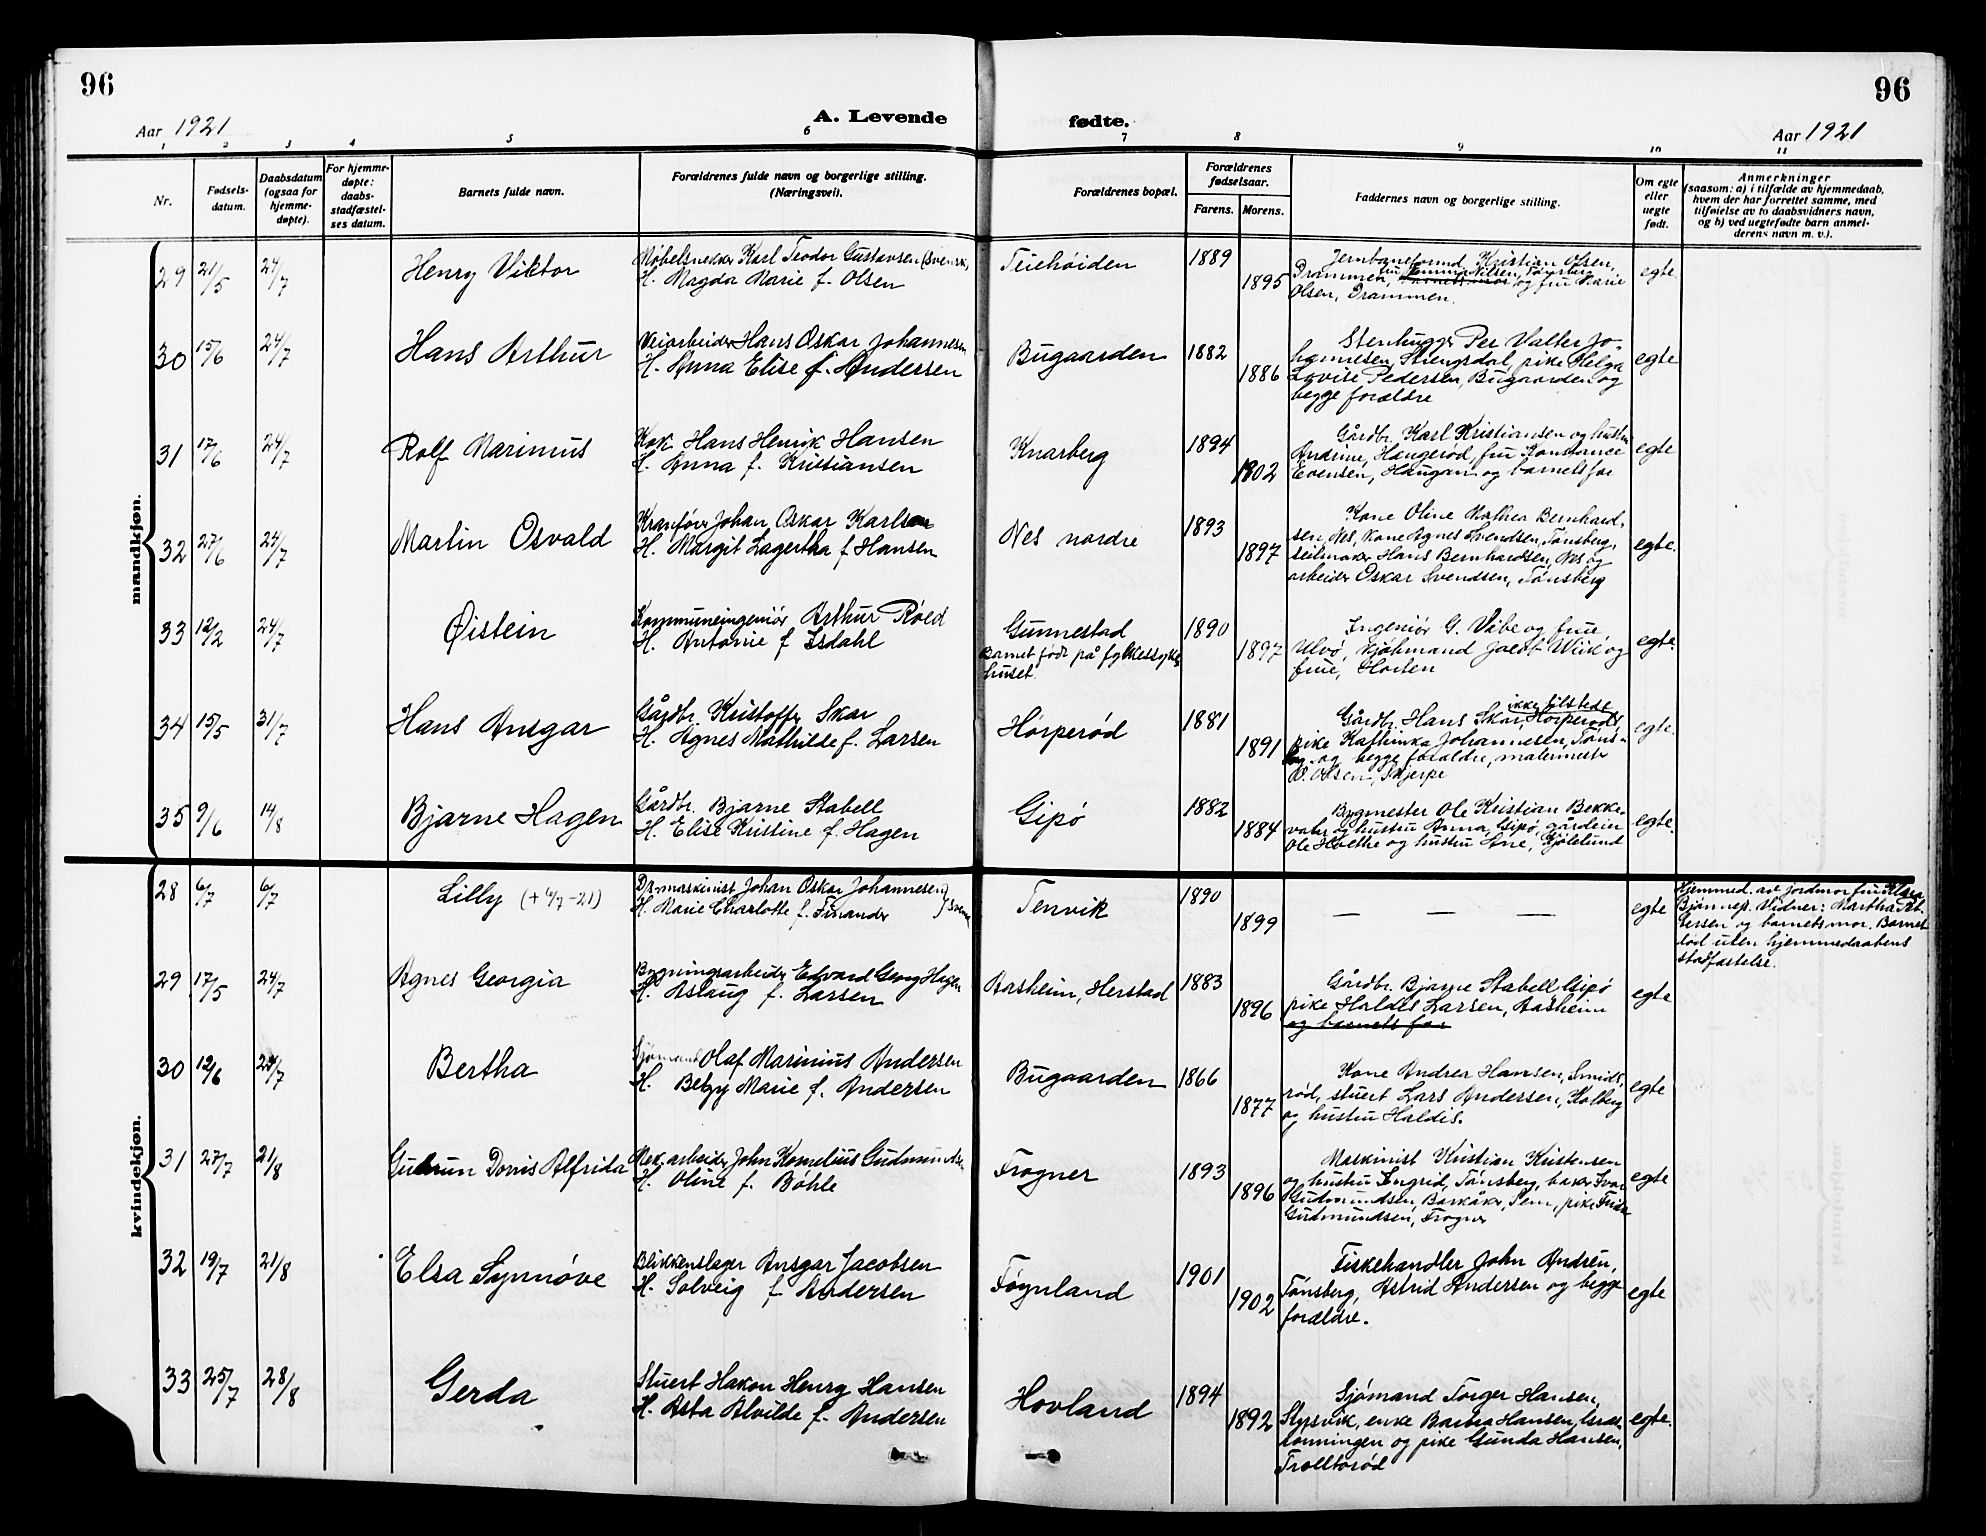 96
96
Aar 1921
A. Levende
fødte.
Aar 1921
1 2 3 4 5 6 7 8 9 10 11
Nr.
Fødsels-
datum.
Daabsdatum
(ogsaa for
hjemme-
døpte).
For hjemme-
døpte:
daabs-
stadfæstel-
ses datum.
Barnets fulde navn.
Forældrenes fulde navn og borgerlige stilling.
(Næringsvei).
Forældrenes bopæl.
Forældrenes
fødselsaar.
Farens. Morens.
Faddernes navn og borgerlige stilling.
Om egte
eller
uegte
født.
Anmerkninger
(saasom: a) i tilfælde av hjemmedaab,
hvem der har forrettet samme, med
tilføielse av to daabsvidners navn,
og b) ved uegtefødte barn anmel-
derens navn m. v.).
mandkjøn.
29 21/5 24/7 Henry Viktor
Møbelsnedker Karl Teodor Gustavsen (svensk)
H. Magda Marie f. Olsen
Teiehöiden 1889 1895
Jernbaneformd Kristian Olsen,
Drammen, fru Nilsen, Tønsberg og fru Marie
Olsen, Drammen.
egte
30 15/6 24/7 Hans Arthur
Veiarbeider Hans Oskar Johannesen
H. Anna Elise f. Andersen
Bugaarden 1882 1886
Stenhugger Per Valter Jo-
hannesen, pike Helga
Lovise Pedersen, Bugaarden og
begge forældre
egte
31 17/6 24/7 Rolf Marinus
Kok Hans Henrik Hansen
H. Anna f. Kristiansen
Knarberg 1894 1902
Gårdbr. Karl Kristiansen og hustru
Andrine, Haugerød, fru Konstance
Evensen, Haugan og barnets far
egte
32 27/6 24/7 Martin Osvald
Kranfører Johan Oskar Karlsen
H. Margit Lagertha f. Hansen
Nes nordre 1893 1897
Kone Oline Mathea Bernhard-
sen, Nes, kone Agnes Svendsen, Tønsberg,
seilmaker Hans Bernhardsen, Nes og
arbeider Oskar Svendsen, Tønsberg
egte.
33 12/2 24/7 Øistein
Kommuneingeniör Arthur Röed
H. Antonie f. Isdahl
Gunnestad
Barnet født på fylkessyke-
huset.
1890 1897
Ingeniör G. Vibe og frue,
Ulvö, kjöbmand Wiik og
frue, Horten
egte.
34 15/5 31/7 Hans Ansgar
Gårdbr. Kristoffer Skar
H. Agnes Mathilde f. Larsen
Hörperöd 1881 1891
ikke tilstede
Gårdbr. Hans Skar, Hörperöd,
pike Kathinka Johannesen, Töns-
berg og begge forældre, malermester
Olsen, Skjerpe
egte.
35 9/6 14/8 Bjarne Hagen
Gårdbr. Bjarne Stabell
H. Elise Kristine f. Hagen
Gipö 1882 1884
Bygmester Ole Kristian Bekke-
vaher og hustru Anna, Gipö, gårdeier
Ole Holthe og hustru Ane, Kjölelund
egte.
kvindekjøn.
28 6/7 6/7 Lilly (+ 6/7 -21)
maskinist Johan Oskar Johannesen
H. Marie Charlotte f. Finander
Tenvik 1890 1899
— — —
egte
Hjemmed. av jordmor fru Klara
Bjönnes. Vidner: Martha
og barnets mor. Barnet
död uten hjemmedaabens
stadfæstelse.
29 17/5 24/7 Agnes Georgia
Bygningsarbeider Edvard Georg Hagen
H. Aslaug f. Larsen
Aasheim, Herstad 1883 1896
Gårdbr. Bjarne Stabell Gipö
pike Haldis Larsen, Aasheim
og barnets far
egte
30 12/6 24/7 Bertha
Sjömand Olaf Marinius Andersen
H. Betzy Marie f. Andersen
Bugaarden 1866 1877
Kone Andrea Hansen, Smids-
röd, stuert Lars Andersen, Kolberg
og hustru Haldis.
egte
31 27/7 21/8 Gudrun Doris Alfrida
Mek. arbeider John Kornelius Gudmundsen
H. Oline f. Böhle
Frogner 1893 1896
Maskinist Kristian Kristensen
og hustru Ingrid, Tönsberg, baker Ivar
Gudmundsen, Barkåker, Sem, pike Frida
Gudmundsen, Frogner
egte
32 19/7 21/8 Elsa Synnöve
Blikkenslager Ansgar Jacobsen
H. Solveig f. Andersen
Föynland 1901 1902
Fiskehandler John Andrén,
Tönsberg, Astrid Andersen og begge
forældre.
egte
33 25/7 28/8 Gerda
Stuert Hakon Henry Hansen
H. Asta Alvilde f. Andersen
Hovland 1894 1892
Sjömand Torger Hansen,
enke Hansen,
og pike Gunda Hansen,
egte.